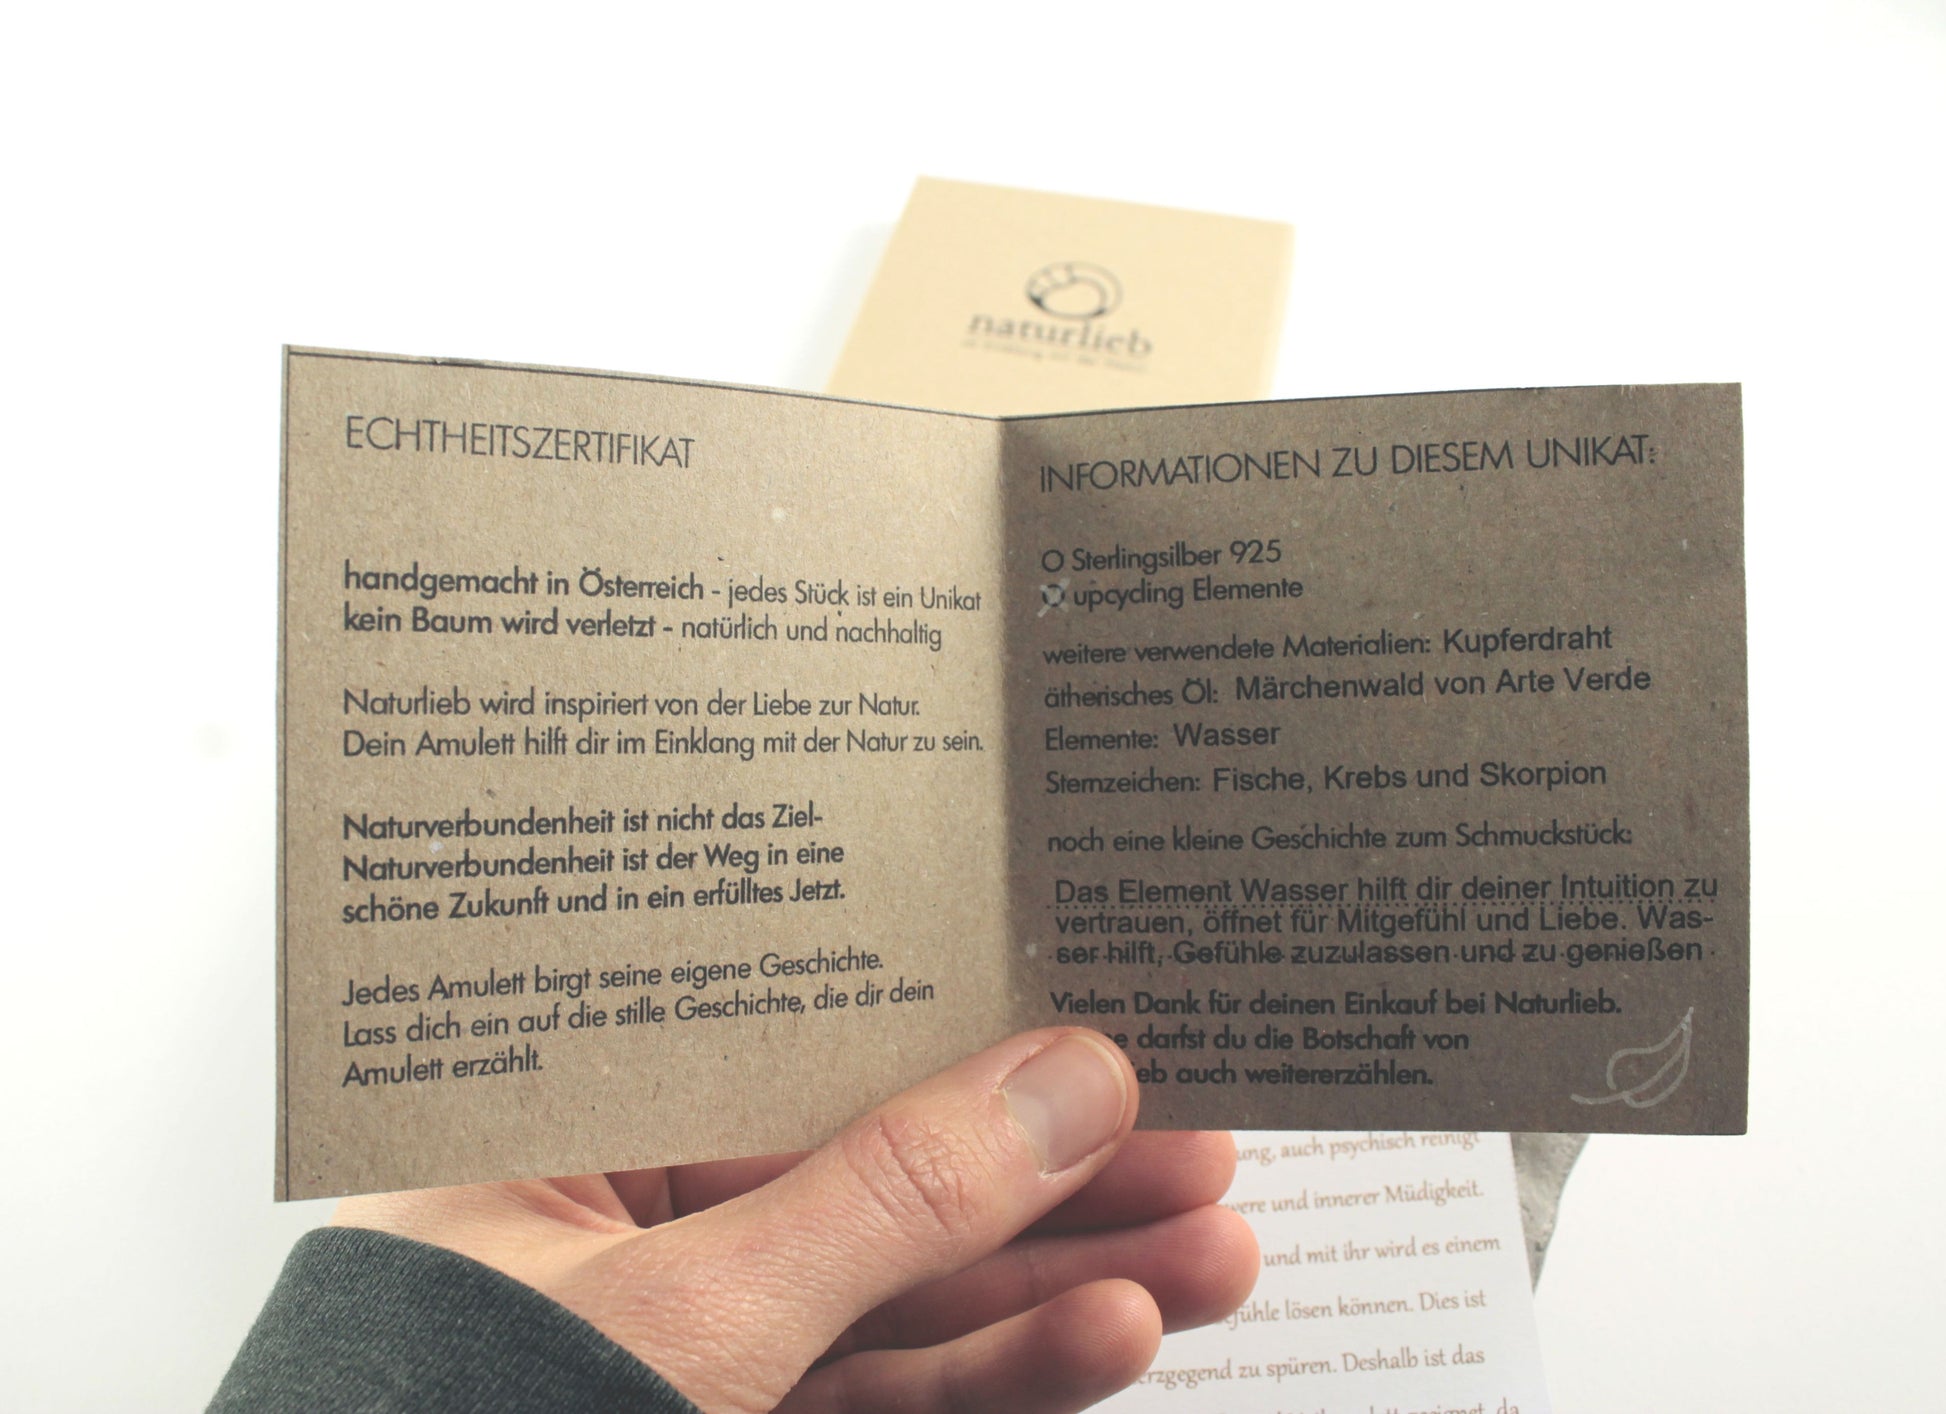 naturlieb
ECHTHEITSZERTIFIKAT
handgemacht in Österreich - jedes Stück ist ein Unikat
kein Baum wird verletzt - natürlich und nachhaltig
Naturlieb wird inspiriert von der Liebe zur Natur.
Dein Amulett hilft dir im Einklang mit der Natur zu sein.
Naturverbundenheit ist nicht das Ziel-
Naturverbundenheit ist der Weg in eine
schöne Zukunft und in ein erfülltes Jetzt.
Jedes Amulett birgt seine eigene Geschichte.
Lass dich ein auf die stille Geschichte, die dir dein
Amulett erzählt.
INFORMATIONEN ZU DIESEM UNIKAT:
O Sterlingsilber 925
O upcycling Elemente
weitere verwendete Materialien: Kupferdraht
ätherisches Öl: Märchenwald von Arte Verde
Elemente: Wasser
Sternzeichen: Fische, Krebs und Skorpion
noch eine kleine Geschichte zum Schmuckstück:
Das Element Wasser hilft dir deiner Intuition zu
vertrauen, öffnet für Mitgefühl und Liebe. Was-
ser hilft, Gefühle zuzulassen und zu genießen
Vielen Dank für deinen Einkauf bei Naturlieb.
darfst du die Botschaft von
auch weitererzählen.
auch psychisch reinigt
und innerer Müdigkeit.
und mit ihr wird es einem
lösen können. Dies ist
zu spüren. Deshalb ist das